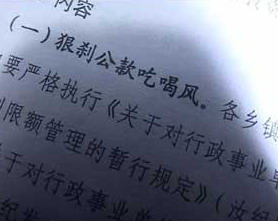 内容
（一）狠刹公款吃喝风。各乡镇
要严格执行《关于对行政事业单
限额管理的暂行规定》（汝纪
关于对行政事业单